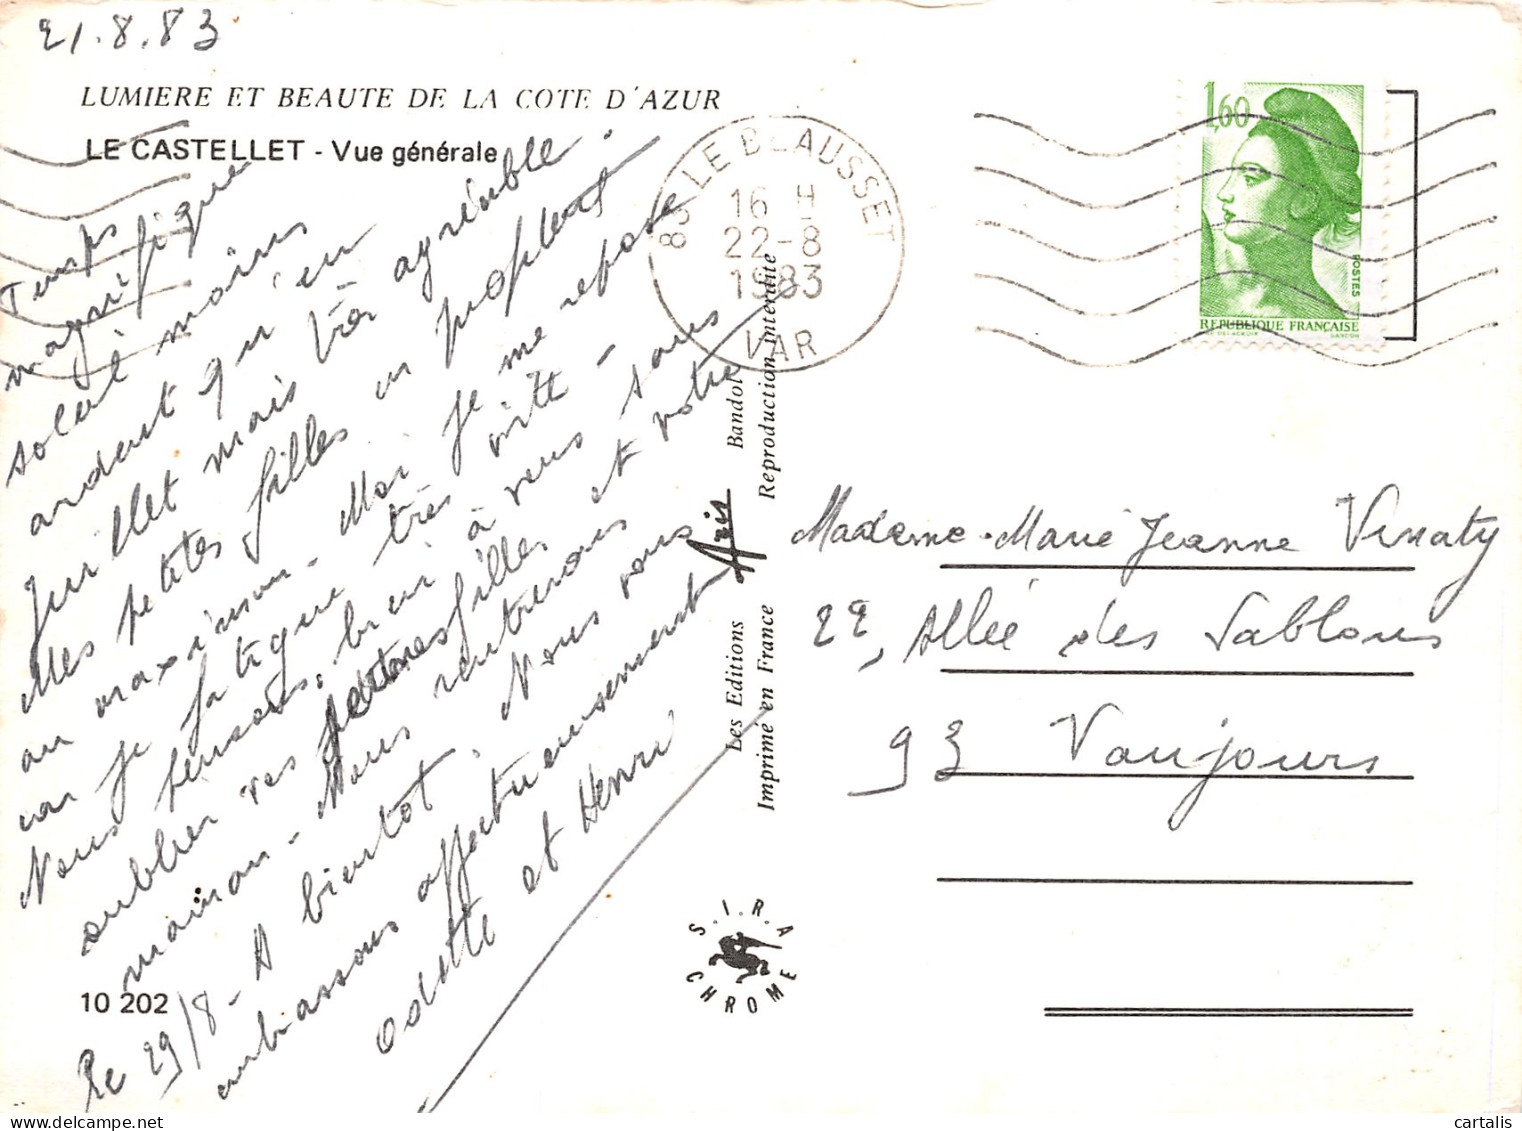 21.8.83
LUMIERE ET BEAUTE DE LA COTE D'AZUR
LE CASTELLET - Vue générale
Temps
magnifique
soleil moins
ardent qu'en
Juillet mais très agréable.
Mes petites filles en profitent
au maximum. Moi je me repose
car je fatigue très vite -
Nous pensons bien à vous sans
oublier vos petites filles et votre
maman - Nous rentrerons
le 29/8 - A bientôt. Nous vous
embrassons affectueusement
Odette et Henri
10 202
83 LE BEAUSSET
16 H
22-8
1983
VAR
Les Editions Aris Bandol
Imprimé en France Reproduction interdite
S.I.R.A
CHROME
1,60
POSTES
REPUBLIQUE FRANÇAISE
Madame Marie Jeanne Vinaty
22, Allée des Sablons
93 Vaujours
cartalis